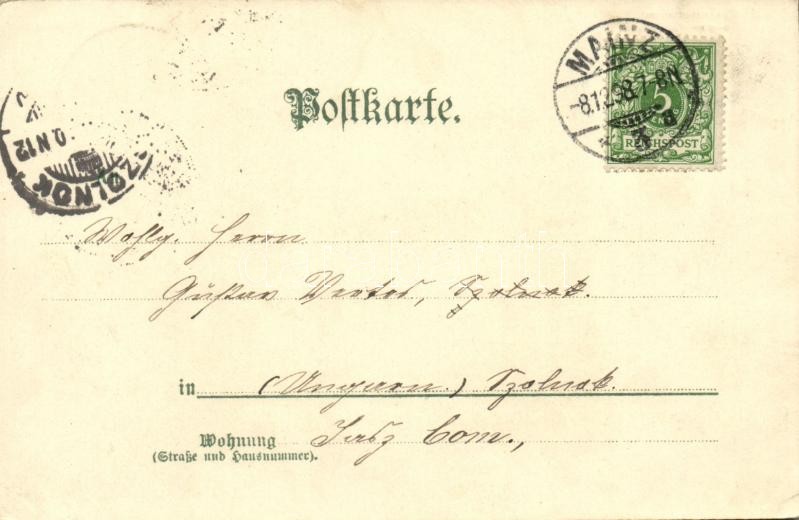 Postkarte.
MAINZ
-8.12.98.7-8N
5
REICHSPOST
SZOLNOK
Wohlg. Herrn
Gustav Vertes, Szolnok.
in (Ungarn.) Szolnok.
Wohnung Jasz Com.,
(Straße und Hausnummer).